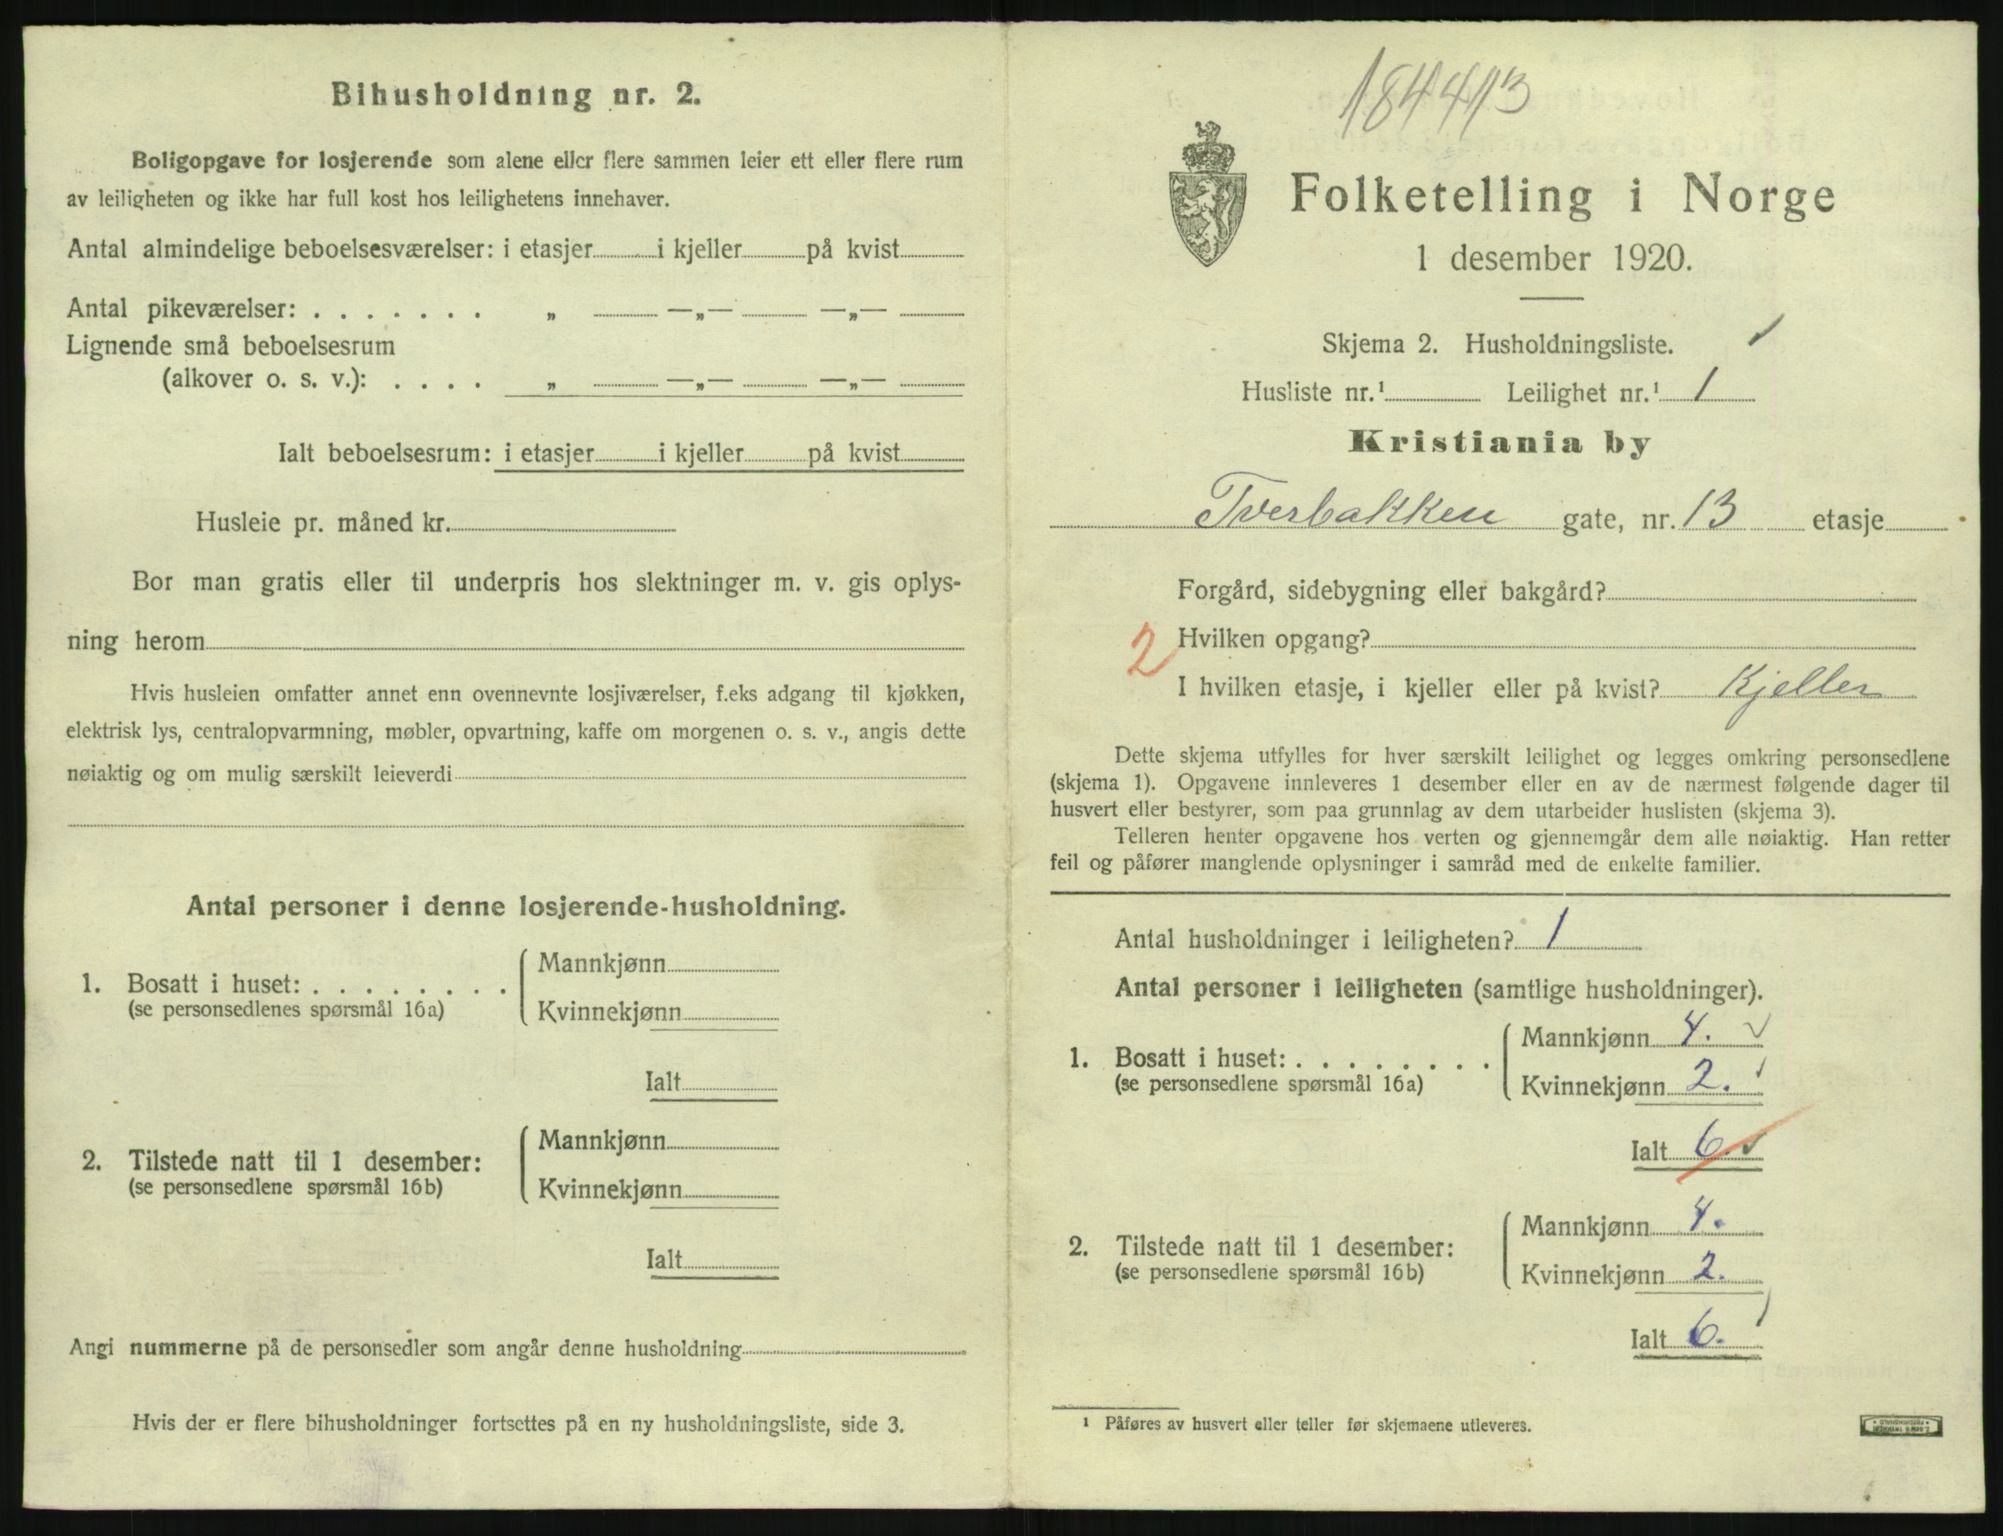 Bihusholdning nr. 2.
Boligopgave for losjerende som alene eller flere sammen leier ett eller flere rum
av leiligheten og ikke har full kost hos leilighetens innehaver.
Antal almindelige beboelsesværelser: i etasjer i kjeller på kvist
Antal pikeværelser: . . . . . . . „ —„— —„—
Lignende små beboelsesrum
(alkover o. s. v.): . . . . „ —„— —„—
Ialt beboelsesrum: i etasjer i kjeller på kvist
Husleie pr. måned kr.
Bor man gratis eller til underpris hos slektninger m. v. gis oplys-
ning herom
Hvis husleien omfatter annet enn ovennevnte losjiværelser, f.eks adgang til kjøkken,
elektrisk lys, centralopvarmning, møbler, opvartning, kaffe om morgenen o. s. v., angis dette
nøiaktig og om mulig særskilt leieverdi
Antal personer i denne losjerende-husholdning.
1. Bosatt i huset: . . . . . . . .
(se personsedlenes spørsmål 16a)
Mannkjønn
Kvinnekjønn
Ialt
2. Tilstede natt til 1 desember:
(se personsedlene spørsmål 16b)
Mannkjønn
Kvinnekjønn
Ialt
Angi nummerne på de personsedler som angår denne husholdning
Hvis der er flere bihusholdninger fortsettes på en ny husholdningsliste, side 3.
Folketelling i Norge
1 desember 1920.
Skjema 2. Husholdningsliste.
Husliste nr.¹ Leilighet nr.¹ 1
Kristiania by
Tverbakken gate, nr. 13 etasje
Forgård, sidebygning eller bakgård?
Hvilken opgang?
2
I hvilken etasje, i kjeller eller på kvist? Kjeller
Dette skjema utfylles for hver særskilt leilighet og legges omkring personsedlene
(skjema 1). Opgavene innleveres 1 desember eller en av de nærmest følgende dager til
husvert eller bestyrer, som paa grunnlag av dem utarbeider huslisten (skjema 3).
Telleren henter opgavene hos verten og gjennemgår dem alle nøiaktig. Han retter
feil og påfører manglende oplysninger i samråd med de enkelte familier.
Antal husholdninger i leiligheten? 1
Antal personer i leiligheten (samtlige husholdninger).
1. Bosatt i huset: . . . . . . . .
(se personsedlene spørsmål 16a)
Mannkjønn 4.
Kvinnekjønn 2.
Ialt 6.
2. Tilstede natt til 1 desember:
(se personsedlene spørsmål 16b)
Mannkjønn 4.
Kvinnekjønn 2.
Ialt 6.
¹ Påføres av husvert eller teller før skjemaene utleveres.